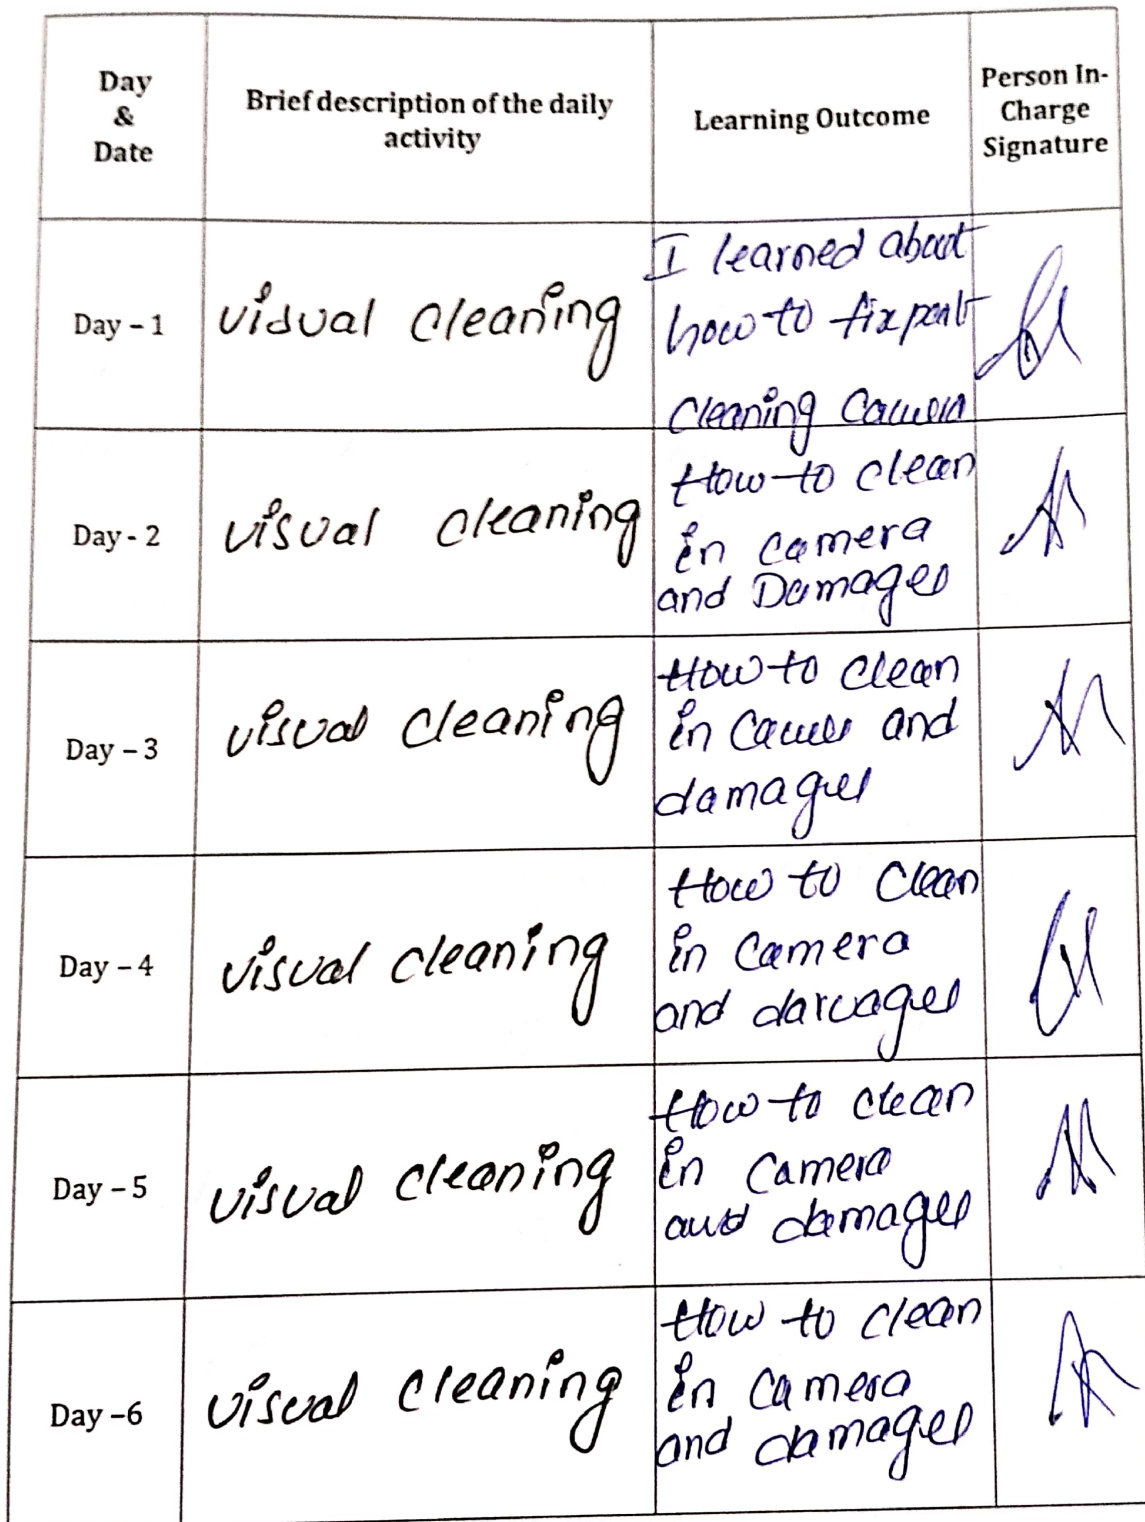 Day
&
Date
Brief description of the daily
activity
Learning Outcome
Person In-
Charge
Signature
Day – 1
visual cleaning
I learned about
how to fix
cleaning Camera
Day - 2
visual cleaning
How to clean
in camera
and Damages
Day – 3
visual cleaning
How to clean
in and
damages
Day – 4
visual cleaning
How to clean
in camera
and damages
Day – 5
visual cleaning
How to clean
in camera
and damages
Day –6
visual cleaning
How to clean
in camera
and damages